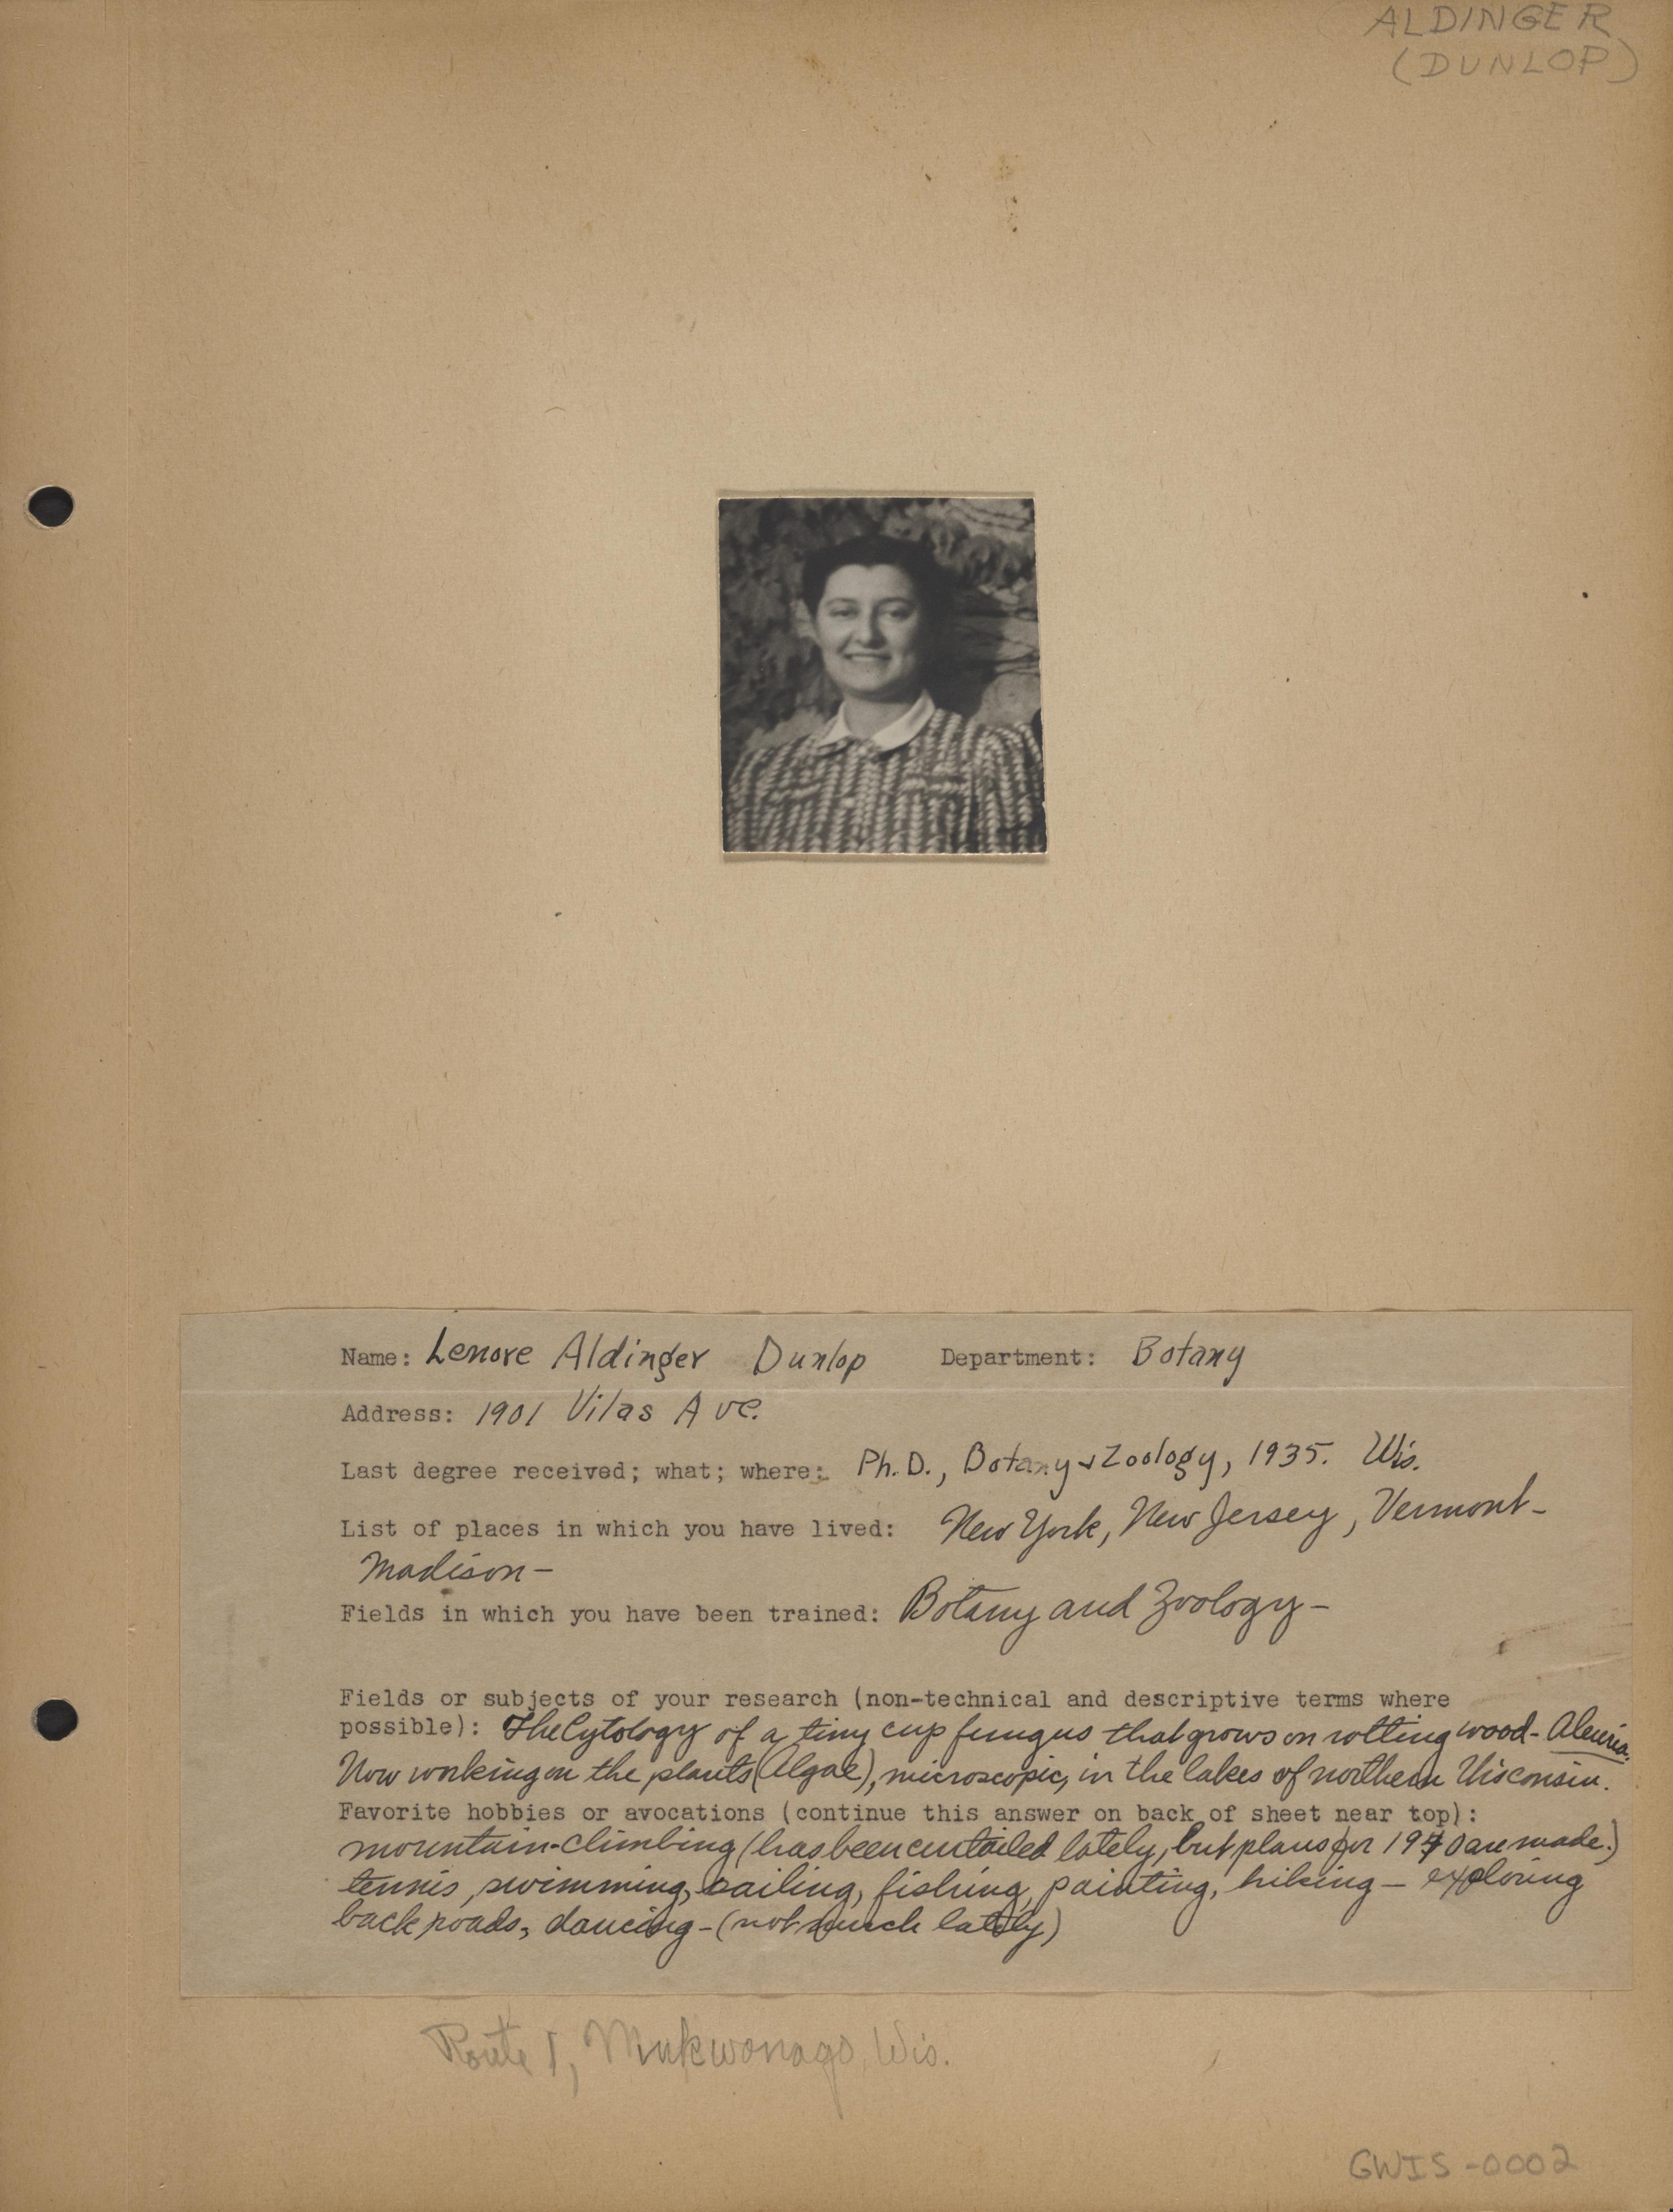 ALDINGER
(DUNLOP)
Name: Lenore Aldinger Dunlop Department: Botany
Address: 1901 Vilas Ave.
Last degree received; what; where: Ph.D., Botany & Zoology, 1935. Wis.
List of places in which you have lived: New York, New Jersey, Vermont-
Madison-
Fields in which you have been trained: Botany and Zoology-
Fields or subjects of your research (non-technical and descriptive terms where
possible): The Cytology of a tiny cup fungus that grows on rotting wood- Aleuria.
Now working on the plants (Algae), microscopic, in the lakes of northern Wisconsin.
Favorite hobbies or avocations (continue this answer on back of sheet near top):
mountain-climbing (has been curtailed lately, but plans for 1940 are made.)
tennis, swimming, sailing, fishing, painting, hiking - exploring
back roads, dancing - (not much lately)
Route 1, Mukwonago, Wis.
GWIS-0002